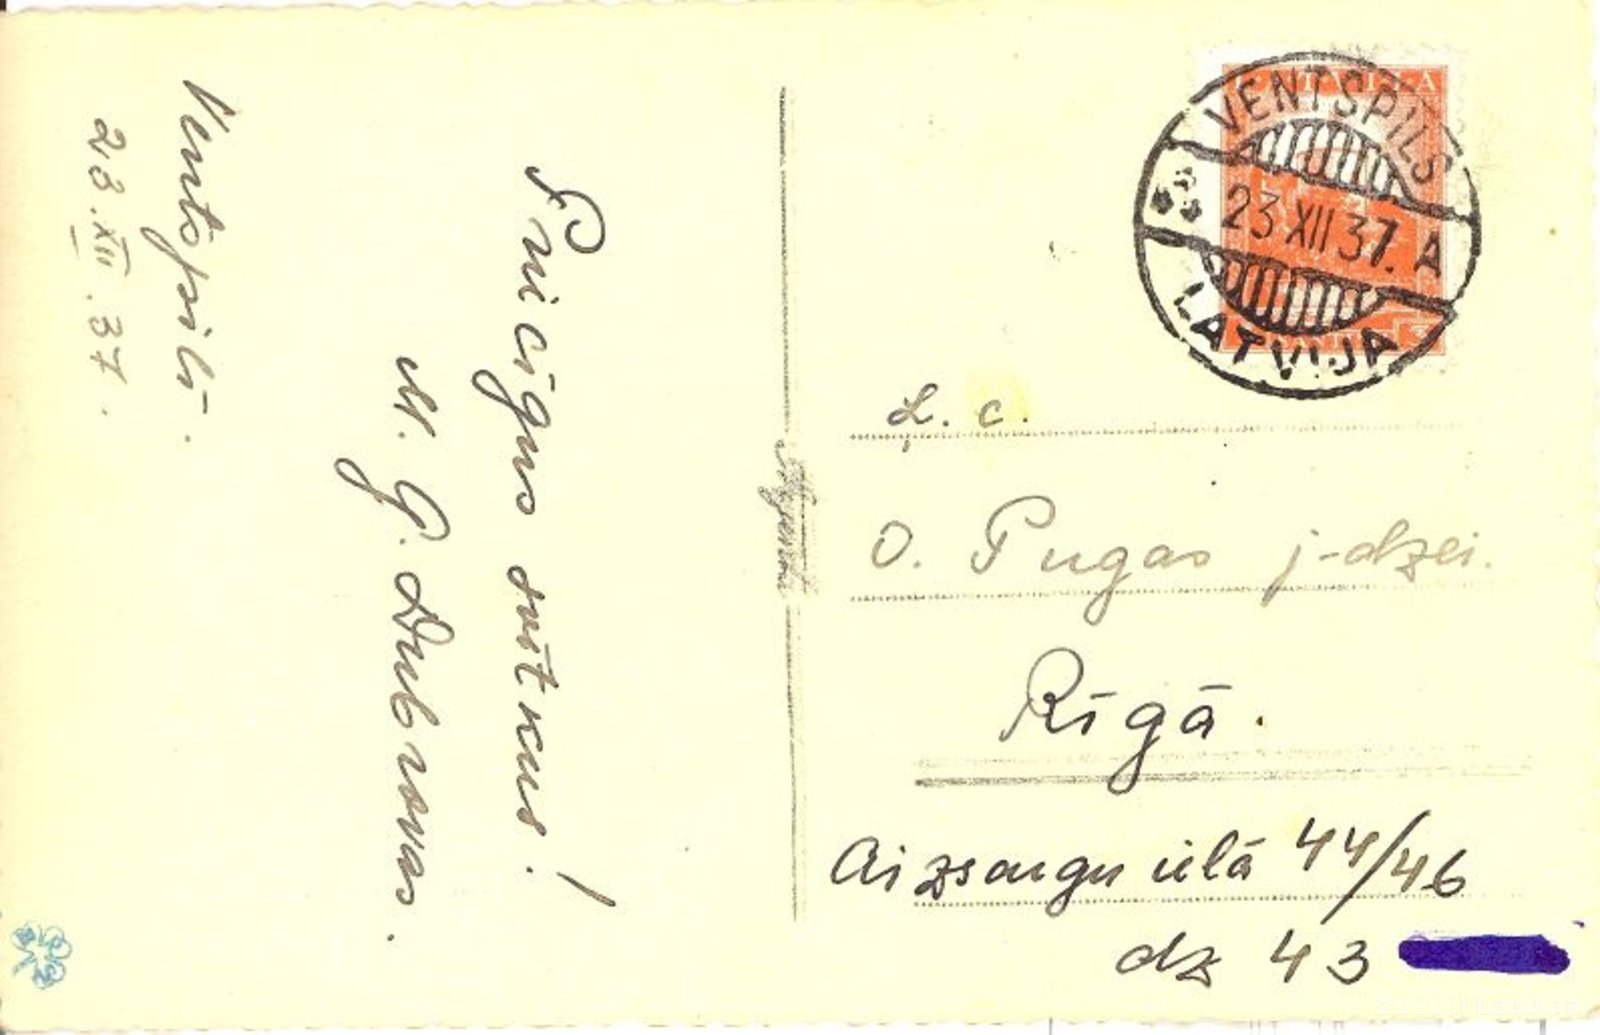 Ventspilī.
23.XII.37.
Priecīgus svētkus!
M. G. Dubrovas.
LATVIJA
VENTSPILS
23 XII 37. A
LATVIJA
Ļ. c.
O. Pugas j-dzei.
Rīgā.
Aizsargu ielā 44/46
dz 43